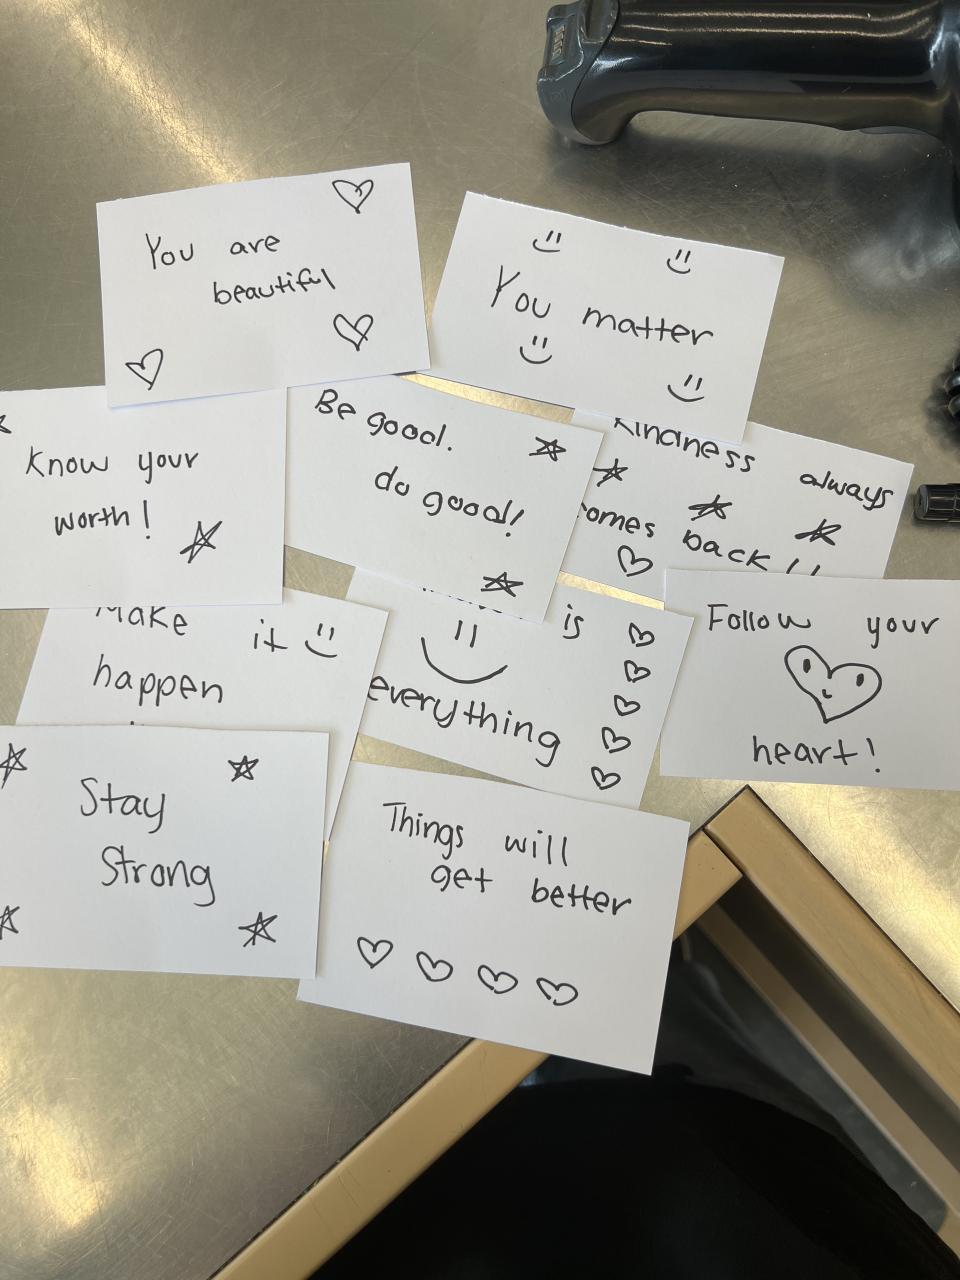 You are
beautiful
You matter
Know your
worth!
Be good.
do good!
kindness always
comes back!!
Make
it
happen
is
everything
Follow your
heart!
Stay
Strong
Things will
get better